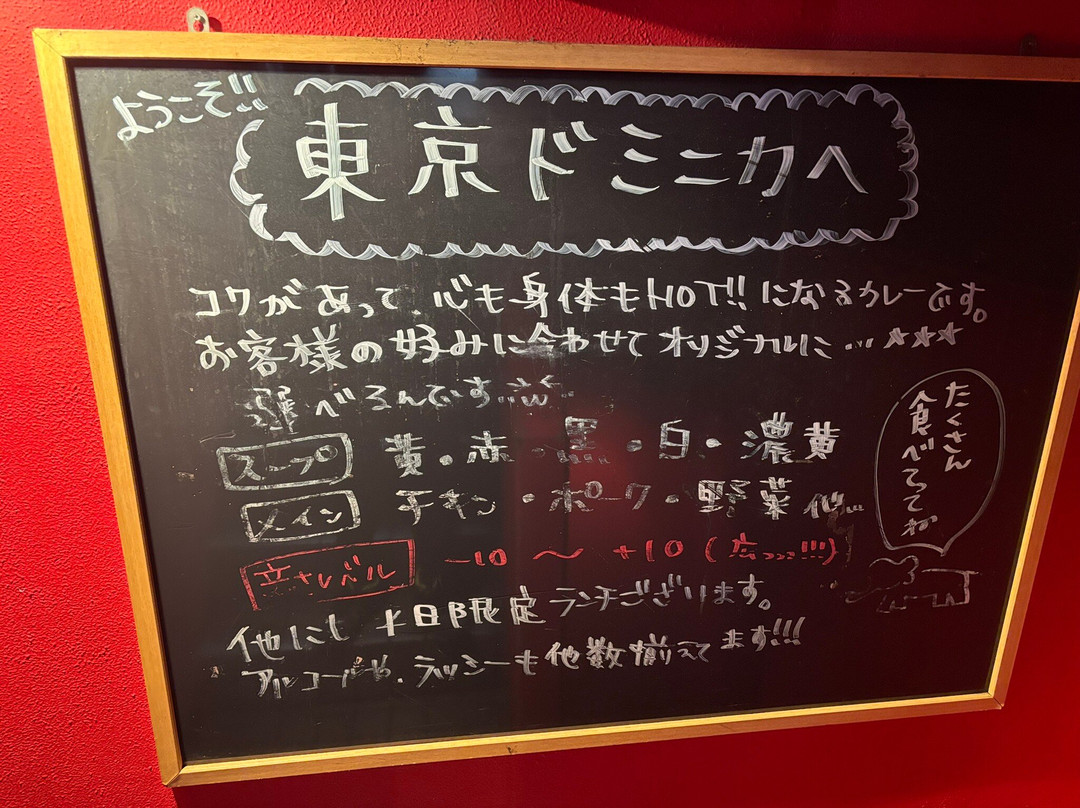 ようこそ!!
東京ドミニカへ
コクがあって、心も身体もHOT!!になるカレーです。
お客様の好みに合わせてオリジナルに…★★★
選べるんです
スープ 黄・赤・黒・白・濃黄
メイン チキン・ポーク・野菜 他
辛さレベル -10 〜 +10 (広っっっ!!!)
他にも 平日限定ランチございます。
アルコールや、ラッシーも多数揃えてます!!!
たくさん
食べてってね